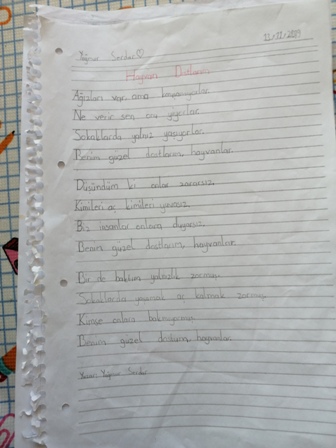 Yağmur Serdar♡
11/11/2019
Hayvan Dostlarım
Ağızları var ama konuşamıyorlar.
Ne verir sen onu yiyorlar.
Sokaklarda yalnız yaşıyorlar.
Benim güzel dostlarım, hayvanlar.
Düşündüm ki onlar zararsız,
Kimileri aç kimileri yuvasız,
Biz insanlar onlara duyarsız,
Benim güzel dostlarım, hayvanlar.
Bir de baktım yalnızlık zormuş,
Sokaklarda yaşamak aç kalmak zormuş,
Kimse onlara bakmıyormuş,
Benim güzel dostlarım, hayvanlar.
Yazan: Yağmur Serdar